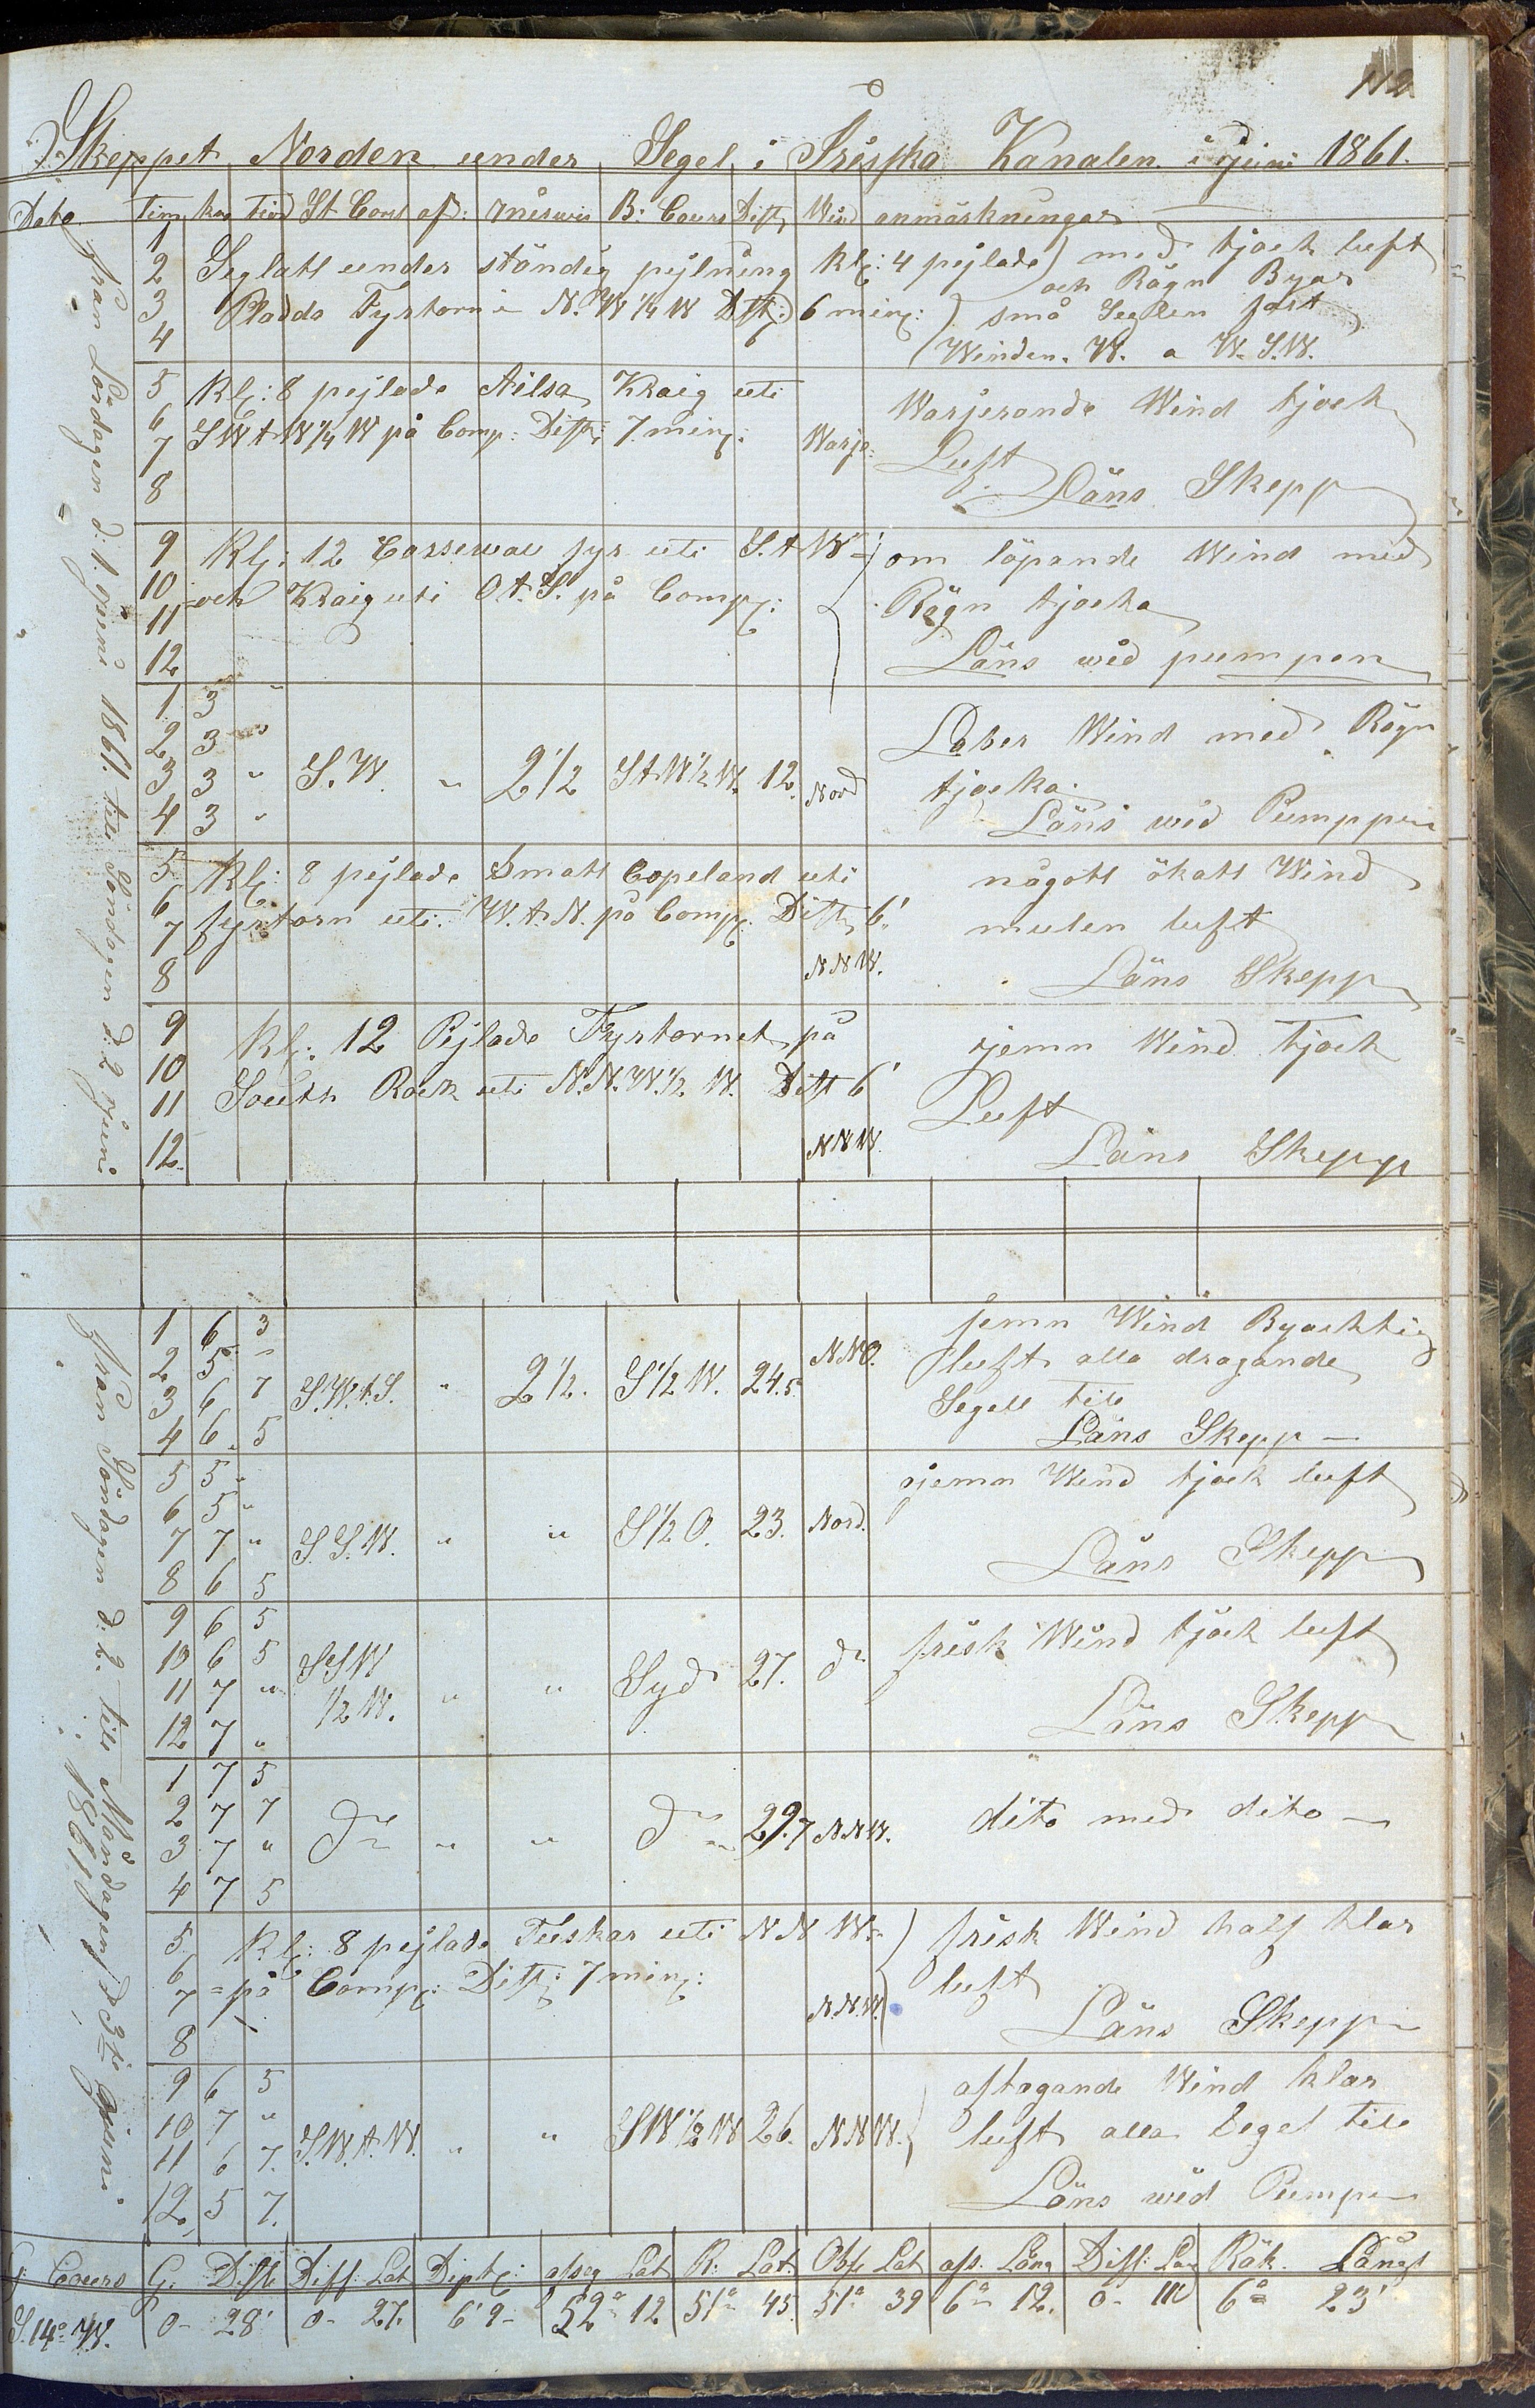 112
Skeppet Norden under Segel i Iriska Kanalen i juni 1861.
Dato Tim kno St Cours af: B: Cours Dist Wind anmärkningar
från Lördagen d: 1 juni 1861. till Söndagen d: 2 juni
1
2 Seglatt under ständig pejlning Kl: 4 pejlade) med tjock luft
och Rägn Byar
3 Pladda Fyrtorn i N. W 1/4 W Dist: 6 min: ) små Seglen fast
4 (Winden. W. a W. S.W.
5 Kl: 8 pejlade Ailsa Kraig uti Warjerande Wind tjock
6
7 SWtW 1/4 W på Comp: Dist: 7 min: Warje: Luft
8 Läns Skepp
9 Kl: 12 Corsewau fyr uti S.t W om löpande Wind med
10 och Kraig uti O t. S. på Comp: Rägn tjocka
11
12 Läns wid pumpen
1 3 "
2 3 " Laber Wind med Rägn
3 3 " S. W. " 2 1/2 S t W 1/2 W. 12. Nord tjocka.
4 3 " Läns wid Pumppen
5 Kl: 8 pejlade Smatt Copeland uti någott ökatt Wind
6
7 fyrtorn uti. W. t. N. på Comp: Dist 6' mulen luft
8 N N W. Läns Skepp
9 Kl: 12 Pejlade Fyrtornet på jemn Wind tjock
10
11 South Rock uti N. N. W. 1/2 W. Dist 6' Luft
12. N N W. Läns Skepp
från Söndagen d: 2. till Måndagen d 3je juni 1861
1 6 3 jemn Wind Byachtig
2 5 " N N O. luft alla dragande
3 6 7 S. W. t. S. " 2 1/2. S 1/2 W. 24.5 Segell till
4 6. 5 Läns Skepp —
5 5 " jemn Wind tjock luft
6 5 "
7 7 " S. S. W. " " S 1/2 O. 23. Nord.
8 6 5 Läns Skepp
9 6 5
10 6 5 SSW frisk Wind tjock luft
11 7 " 1/2 W. " " Syd 27. do
12 7 " Läns Skepp
1 7 5
2 7 7 do " " do 29.7 N N W. dito med dito —
3 7 "
4 7 5
5 Kl: 8 pejlade Tuskar uti N N W. frisk Wind half klar
6
7 på Comp: Dist: 7 min: N. N. W. luft
8 Läns Skepp
9 6 5 aftagande Wind klar
10 7 "
11 6 7. S. W. t. W. " " S W 1/2 W 26. N N W. luft alla Segel till
12 5 7. Läns wid Pumpen
G: Cours G. Dist Diff: Lat Dipt: afseg Lat R: Lat: Obs Lat af. Lång Diff: Lång Räk. Långt
S. 14° W. 0- 28' 0- 27. 6' 9- 52° 12 51° 45. 51° 39 6° 12. 0- 11 6° 23'